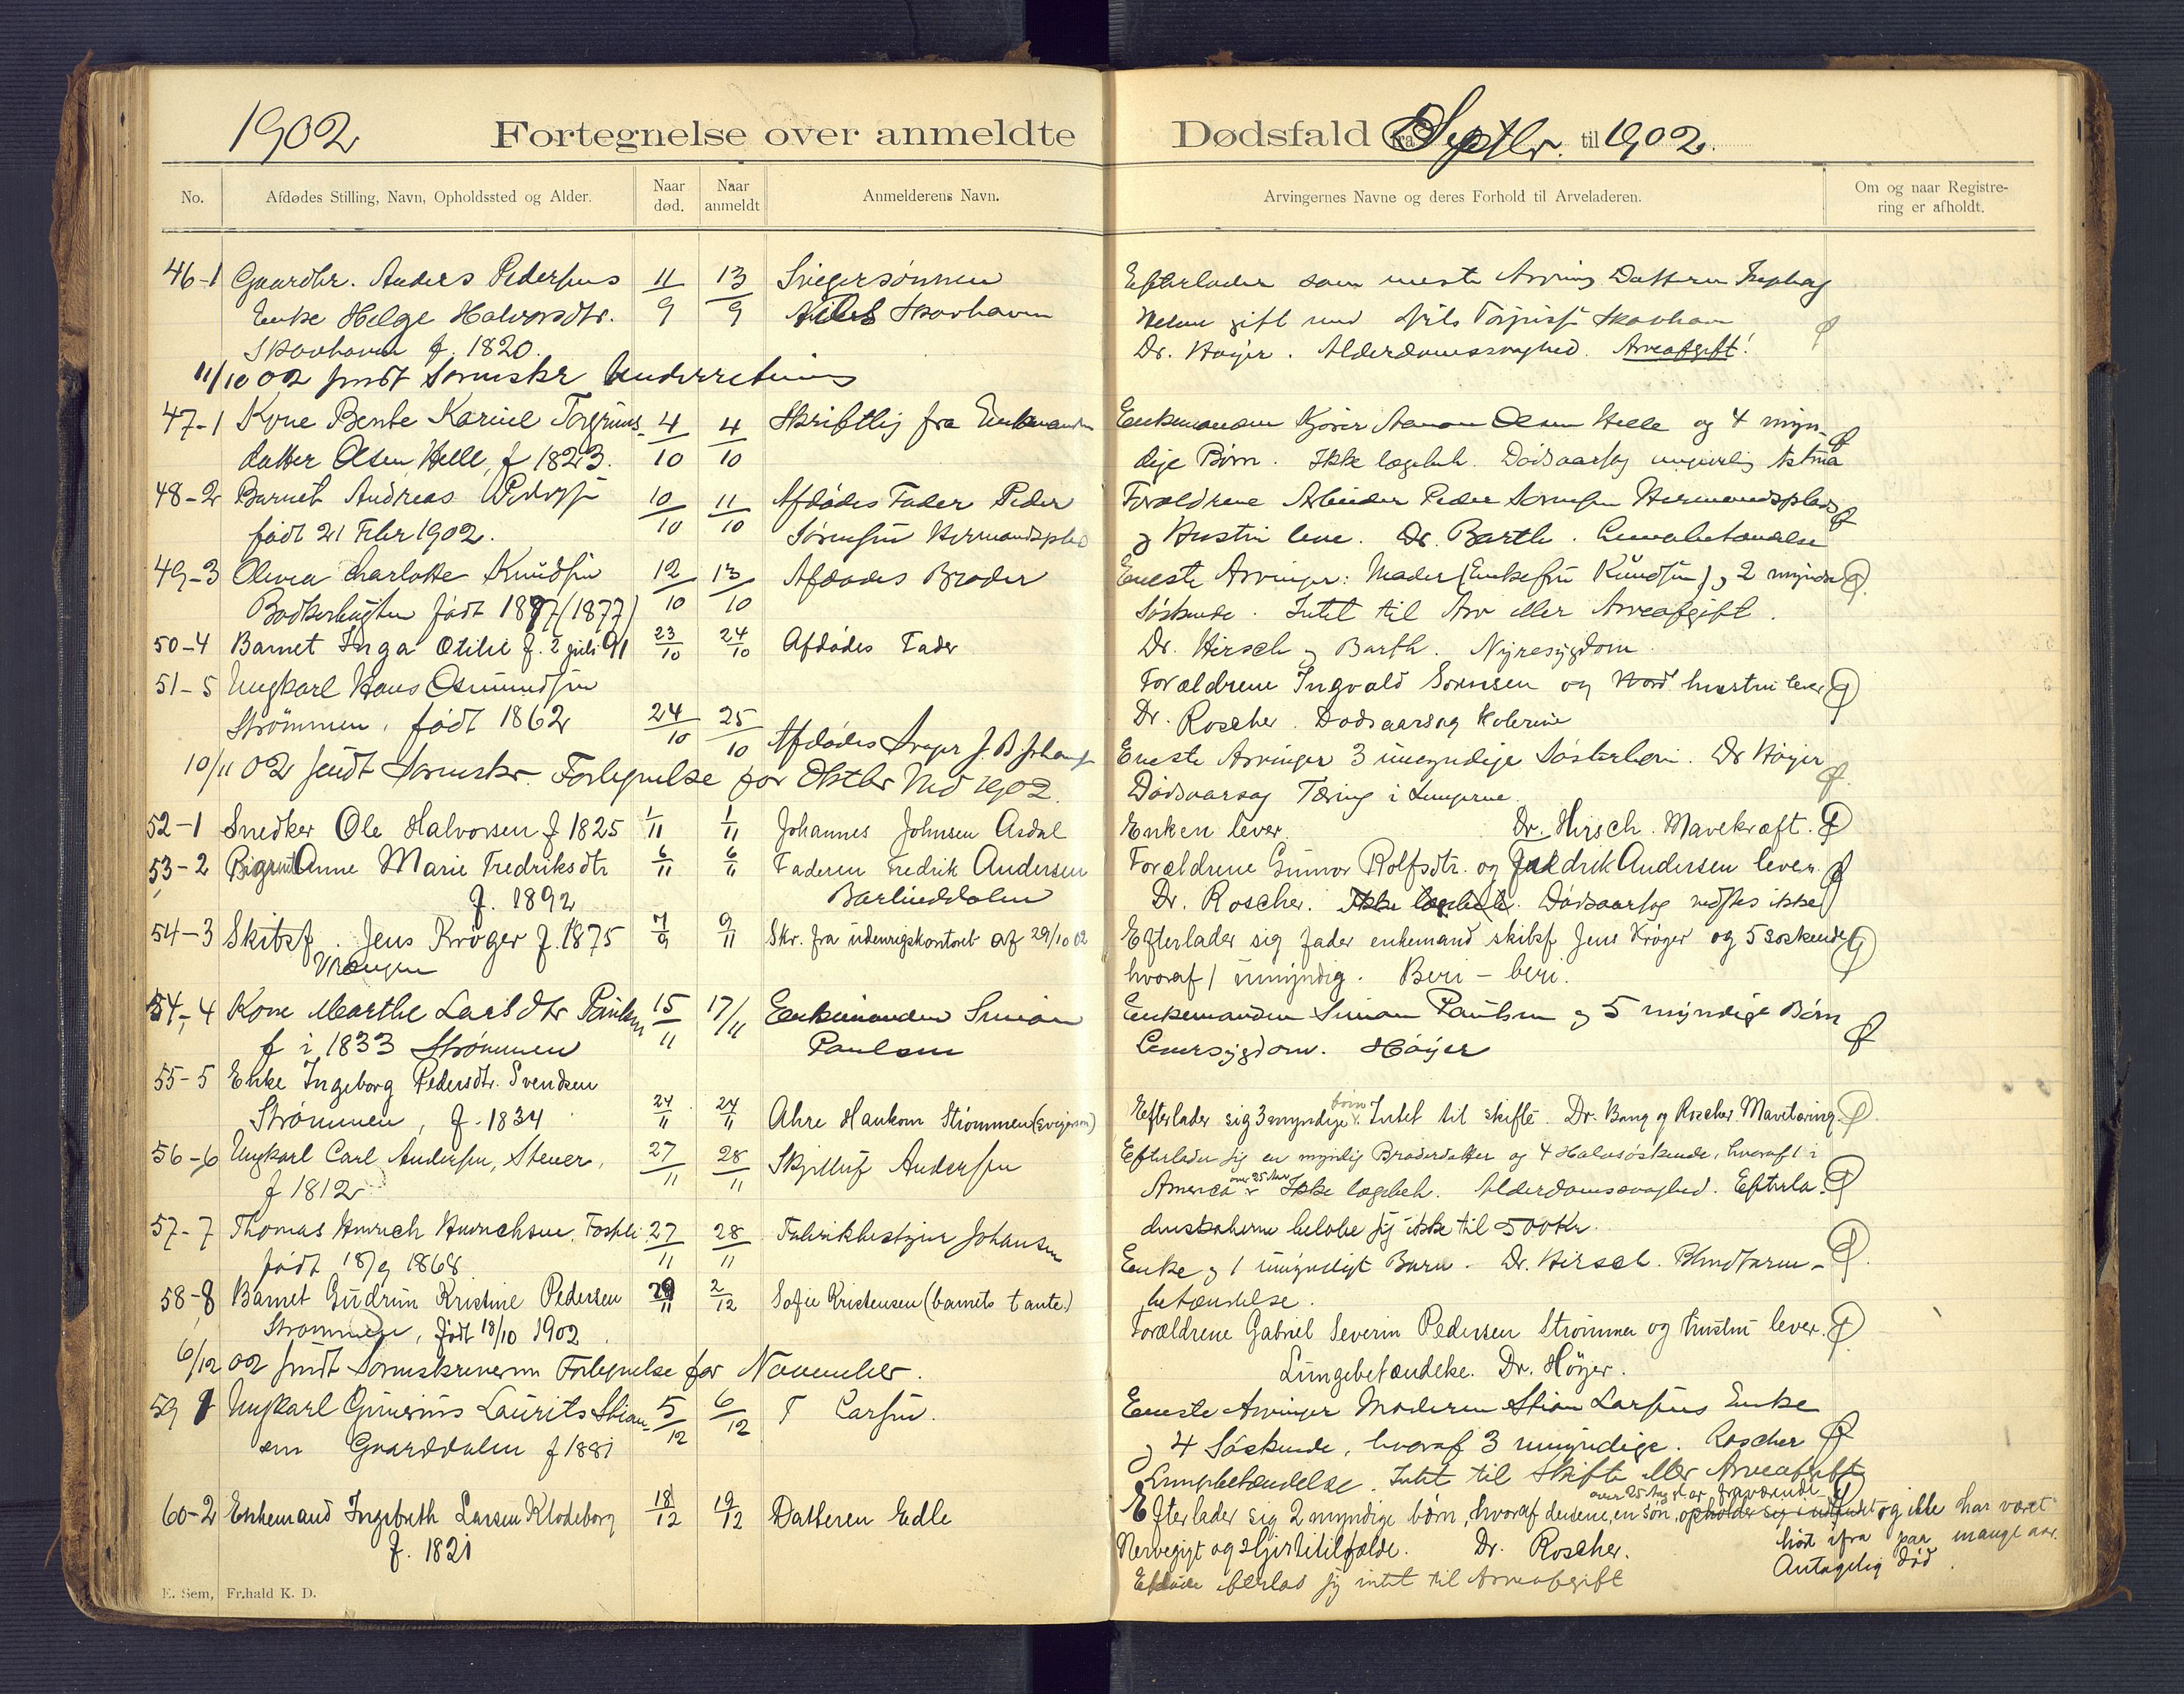 1902 Fortegnelse over anmeldte
No. Afdødes Stilling, Navn, Opholdssted og Alder. Naar død. Naar anmeldt Anmelderens Navn.
46-1 Gaardbr. Anders Pedersens 11/9 13/9 Sviegersønnen
Enke Helge Halvorsdtr. Niels Skovhaven
Skovhaven f. 1820.
11/10 02 sendt Sorenskr Underretning
47-1 Kone Bente Karine Torgrims- 4/10 4/10 Skriftlig fra Enkemanden
datter Olsen Helle, f 1823.
48-2 Barnet Andreas 10/10 11/10 Afdødes Fader Peder
født 21 Febr 1902. Sørensen Hermandsplad
49-3 Olivia Charlotte Knudsen 12/10 13/10 Afdødes Broder
født 1887 (1877)
50-4 Barnet Inga Otilie f. 2 juli 91 23/10 24/10 Afdødes Fader
51-5 Ungkarl Hans Osmundsen
Strømmen, født 1862 24/10 25/10 Afdødes Svoger J. B Johansen
10/11 02 sendt Sorenskr. Fortegnelse for Oktbr Md 1902.
52-1 Snedker Ole Halvorsen f 1825 1/11 1/11 Johannes Johnsen Asdal
53-2 Anne Marie Fredriksdtr 6/11 6/11 Faderen Fredrik Andersen
f. 1892 Barlinddalen
54-3 Skibsf. Jens Krøger f. 1875 7/9 9/11 Skr. fra udenrigskontoret af 29/10 02
Vrængen
54-4 Kone Marthe Larsdtr Paulsen 15/11 17/11 Enkemanden Simon
f i 1833 Strømmen Paulsen
55-5 Enke Ingeborg Pedersdtr. Svendsen
Strømmen, f. 1834 24/11 24/11 Ahre Haukom Strømmen (svigersøn)
56-6 Ungkarl Carl Andersen, Stener, 27/11 28/11 Andersen
f 1812
57-7 Thomas Hinrich Hinrichsen, 27/11 28/11 Fabrikbestyrer Johansen
født 18/9 1868
58-8 Barnet Gudrun Kristine Pedersen 29/11 2/12 Sofie Kristensen (barnets tante)
Strømmen, født 18/10 1902
6/12 02 sendt Sorenskriveren Fortegnelse for November.
59 1 Ungkarl Laurits 5/12 6/12 T Larsen.
sen Gaarddalen f 1881
60-2 Enkemand Ingebreth Larsen Klodeborg 18/12 19/12 Datteren Edle
f. 1821
E. Sem, Fr.hald K. D.
Dødsfald fra Septbr. til 1902.
Arvingernes Navne og deres Forhold til Arveladeren. Om og naar Registrering er afholdt.
Efterlader som neste Arving Datteren
gift med Skovhaven
Dr. Høyer. Alderdomssvaghed. Arveafgift!
Enkemanden Olsen Helle og 4 myn-
dige Børn. Ikke lægebeh. Dødsaarsag Astma
Forældrene Arbeider Peder Sørensen Hermandsplads
og Hustru leve. Dr. Barth.
Eneste Arvinger: Moder (Enkefru Knudsen) og 2 myndige
Søskende. Intet til Arv eller Arveafgift.
Dr. Hirsch og Barth. Nyresygdom.
Forældrene Ingvald Sørensen og hustru lever
Dr. Roscher. Dødsaarsag kolerine
Eneste Arvinger 3 umyndige Søsterbørn. Dr Høyer
Dødsaarsag Tæring i Lungerne.
Enken lever. Dr. Hirsch. Mavekræft.
Forældrene Gunvor Rolfsdtr. og Fredrik Andersen lever.
Dr. Roscher. Ikke lægebeh. Dødsaarsag ikke
Efterlader sig fader enkemand skibsf Jens Krøger og 5 søskende
hvoraf 1 umyndig. Beri-beri.
Enkemanden Simon Paulsen og 5 myndige Børn
Leversygdom. Høyer
Efterlader sig 3 myndige børn. Intet til skifte. Dr. Bang og Roscher. Mavetæring.
Efterlader sig en myndig Broderdatter og 4 Halvsøskende, hvoraf 1 i
America over 25 Aar. Ikke lægebeh. Alderdomssvaghed. Efterla-
denskaberne beløbe sig ikke til 500 Kr.
Enke og 1 umyndigt Barn. Dr. Hirsch. Blindtarm-
betændelse.
Forældrene Gabriel Severin Pedersen Strømmen og hustru lever.
Lungebetændelse. Dr. Høyer.
Eneste Arvinger Moderen Stian Larsens Enke
og 4 Søskende, hvoraf 3 umyndige. Roscher
Lungebetændelse. Intet til Skifte eller Arveafgift
over 25 Aar er fraværende
Efterlader sig 2 myndige børn, hvoraf en søn, opholder sig i udlandet og ikke har været
Nervegigt og Hjertetilfælde. Dr. Roscher. hørt ifra paa mange aar.
Afdøde efterlod sig intet til Arveafgift Antagelig død.